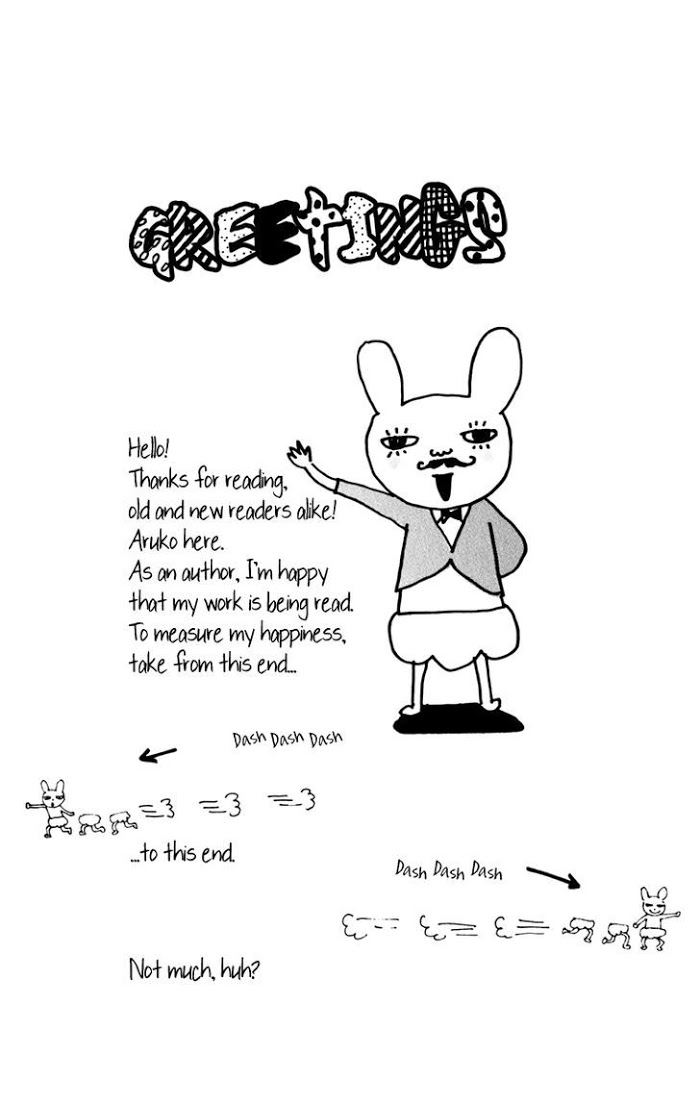 GREETINGS
Hello!
Thanks for reading,
old and new readers alike!
Aruko here.
As an author, I'm happy
that my work is being read.
To measure my happiness,
take from this end...
Dash Dash Dash
...to this end.
Dash Dash Dash
Not much, huh?